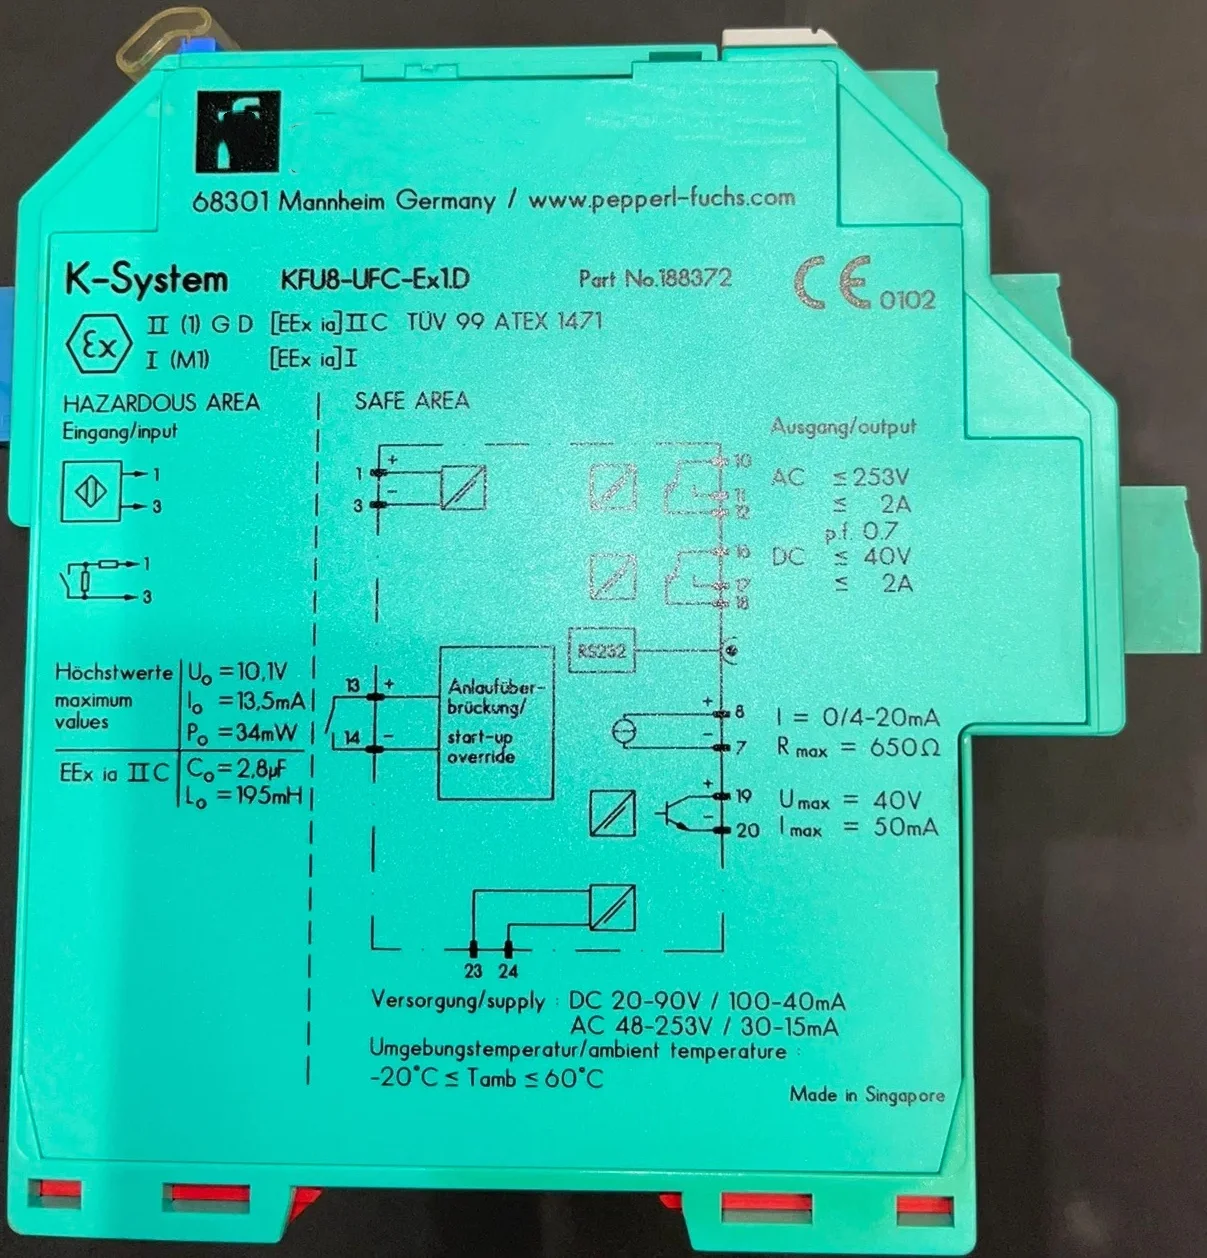 68301 Mannheim Germany / www.pepperl-fuchs.com
K-System KFU8-UFC-Ex1.D Part No.188372 CE 0102
Ex II (1) G D [EEx ia]IIC TÜV 99 ATEX 1471
I (M1) [EEx ia]I
HAZARDOUS AREA SAFE AREA
Eingang/input
1
3
1
3
Höchstwerte
maximum
values
U₀ =10,1V
I₀ =13,5mA
P₀ =34mW
EEx ia IIC
C₀=2,8µF
L₀ =195mH
1 +
3 -
13 +
14 -
Anlaufüber-
brückung/
start-up
override
RS232
Ausgang/output
10
11
12
AC ≤253V
≤ 2A
p.f. 0.7
16
17
18
DC ≤ 40V
≤ 2A
+ 8
- 7
I = 0/4-20mA
R max = 650Ω
+ 19
- 20
U max = 40V
I max = 50mA
23 24
Versorgung/supply : DC 20-90V / 100-40mA
AC 48-253V / 30-15mA
Umgebungstemperatur/ambient temperature :
-20°C ≤ Tamb ≤ 60°C
Made in Singapore